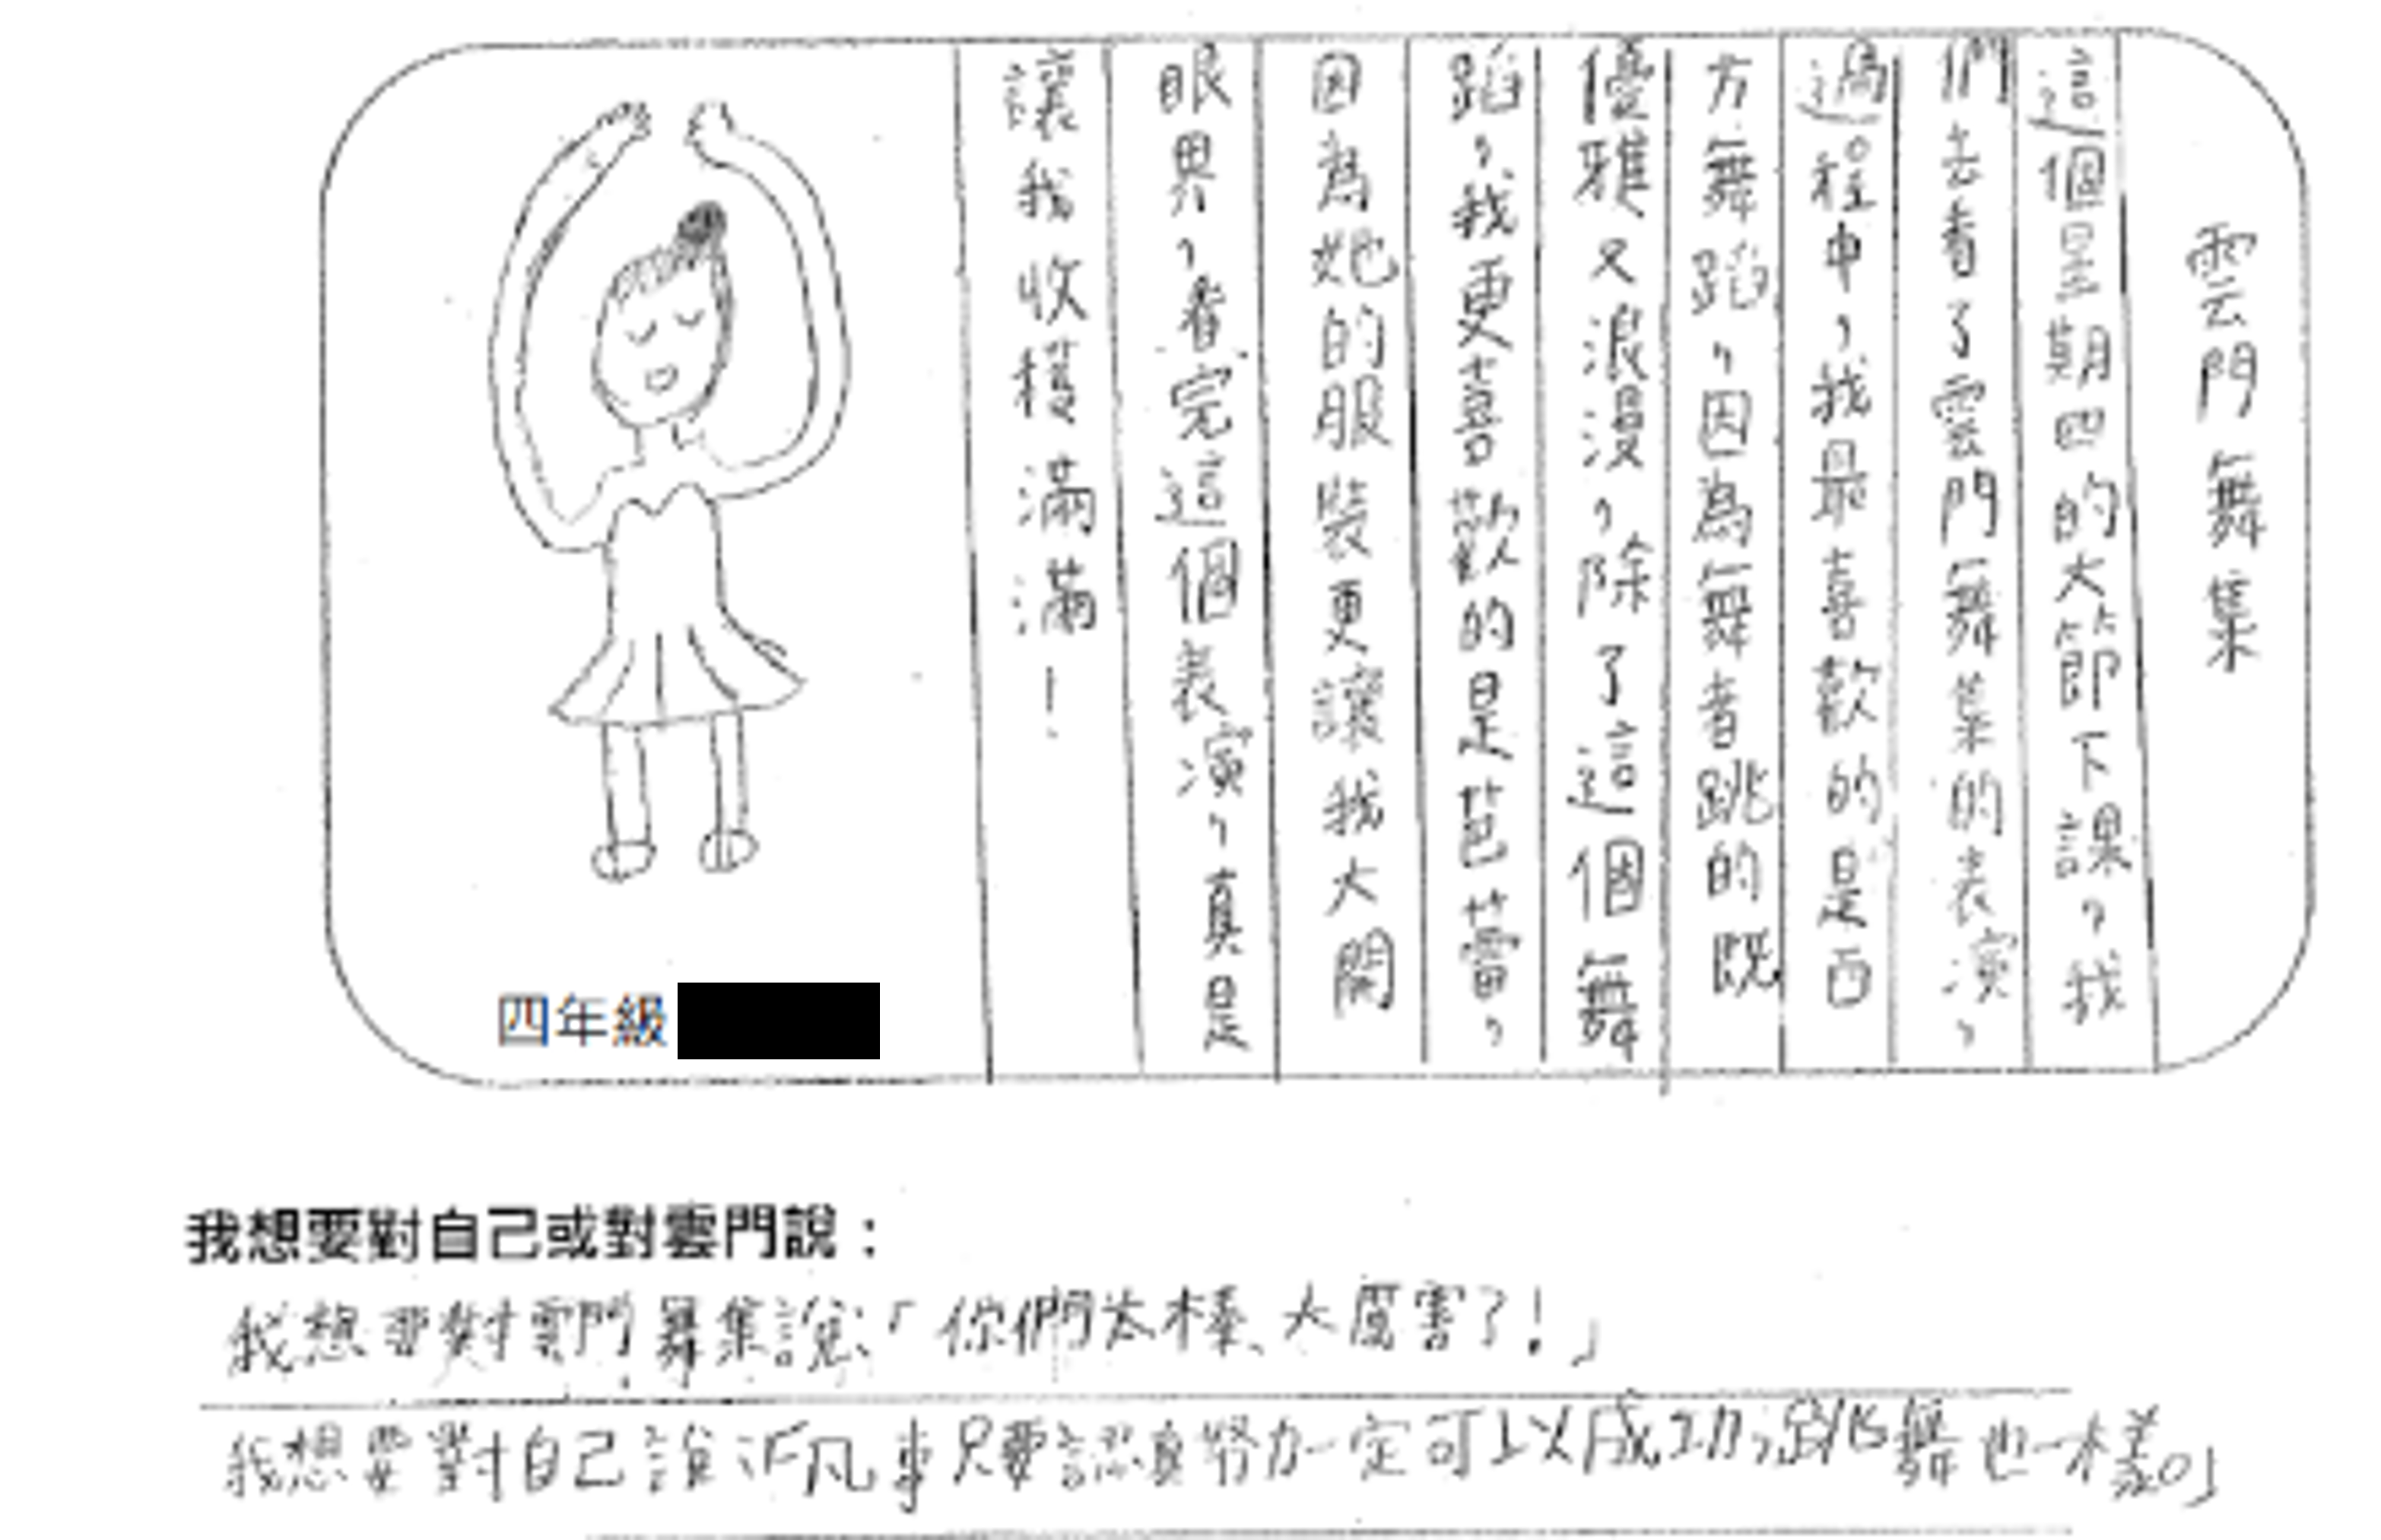 雲門舞集
這個星期四的大節下課，我
們去看了雲門舞集的表演，
過程中，我最喜歡的是西
方舞蹈，因為舞者跳的既
優雅又浪漫，除了這個舞
蹈，我更喜歡的是芭蕾，
因為她的服裝更讓我大開
眼界，看完這個表演，真是
讓我收穫滿滿！
四年級
我想要對自己或對雲門說：
我想要對雲門舞集說：「你們太棒、太厲害了！」
我想要對自己說：「凡事只要認真努力一定可以成功，跳舞也一樣。」